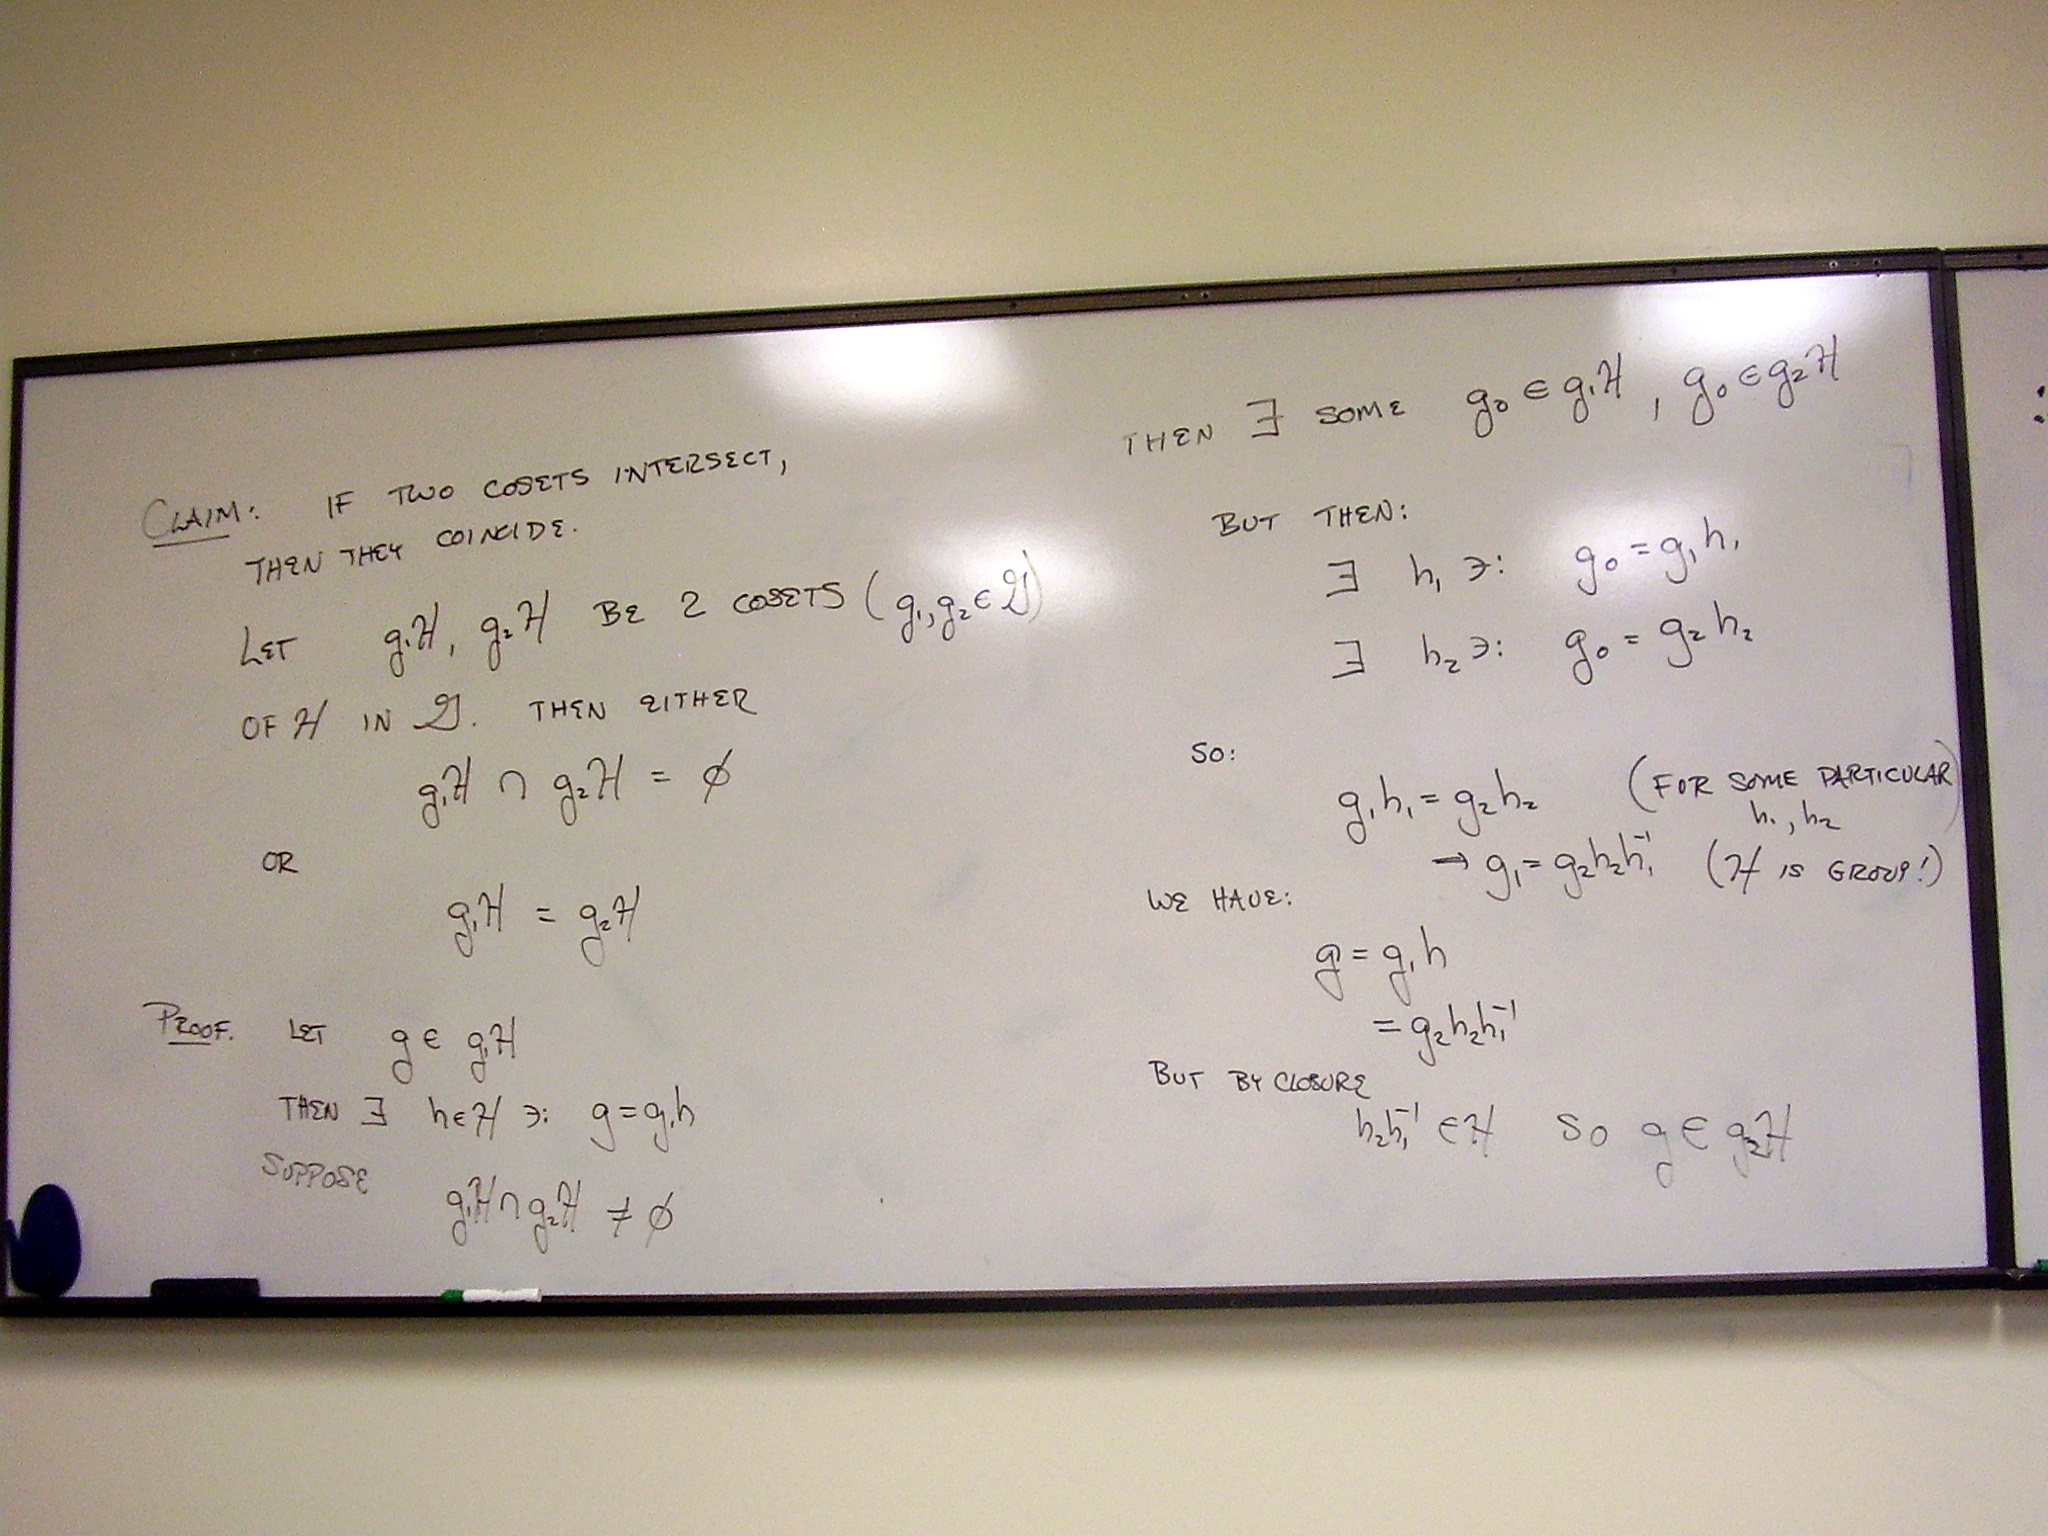 CLAIM: IF TWO COSETS INTERSECT,
THEN THEY COINCIDE.
LET g₁H, g₂H BE 2 COSETS (g₁, g₂ ∈ G)
OF H IN G. THEN EITHER
g₁H ∩ g₂H = ∅
OR
g₁H = g₂H
PROOF. LET g ∈ g₁H
THEN ∃ h ∈ H ∋: g = g₁h
SUPPOSE
g₁H ∩ g₂H ≠ ∅
THEN ∃ SOME g₀ ∈ g₁H, g₀ ∈ g₂H
BUT THEN:
∃ h₁ ∋: g₀ = g₁h₁
∃ h₂ ∋: g₀ = g₂h₂
SO:
g₁h₁ = g₂h₂ (FOR SOME PARTICULAR
h₁, h₂)
→ g₁ = g₂h₂h₁⁻¹ (H IS GROUP!)
WE HAVE:
g = g₁h
= g₂h₂h₁⁻¹
BUT BY CLOSURE
h₂h₁⁻¹ ∈ H SO g ∈ g₂H